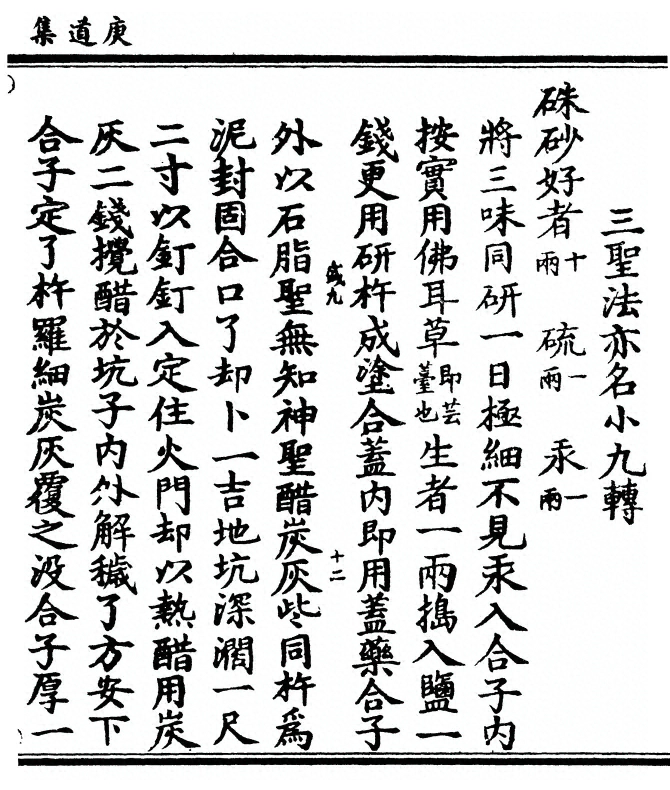 庚道集
三聖法亦名小九轉
硃砂好者十兩 硫一兩 汞一兩
將三味同研一日極細不見汞入合子內
按實用佛耳草即芸薹也生者一兩搗入鹽一
錢更用研杵成塗合蓋內即用蓋藥合子
盛九 十二
外以石脂聖無知神聖醋炭灰些同杵為
泥封固合口了却卜一吉地坑深濶一尺
二寸以釘釘入定住火門却以熱醋用炭
灰二錢攪醋於坑子內外解穢了方安下
合子定了杵羅細炭灰覆之沒合子厚一